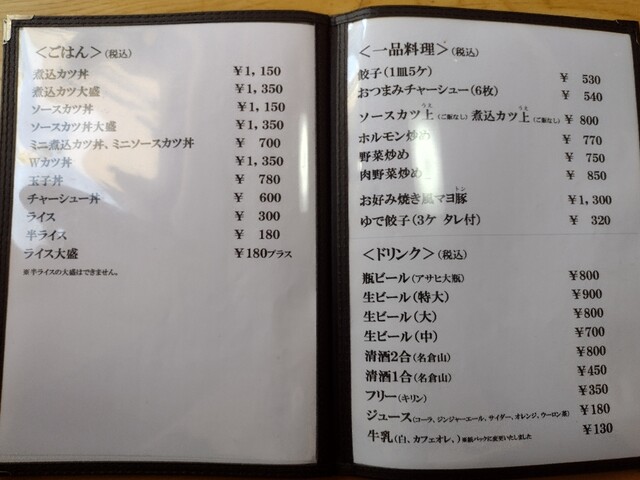 ＜ごはん＞(税込)
煮込カツ丼 ￥1,150
煮込カツ大盛 ￥1,350
ソースカツ丼 ￥1,150
ソースカツ丼大盛 ￥1,350
ミニ煮込カツ丼、ミニソースカツ丼 ￥ 700
Wカツ丼 ￥1,350
玉子丼 ￥ 780
チャーシュー丼 ￥ 600
ライス ￥ 300
半ライス ￥ 180
ライス大盛 ￥180プラス
※半ライスの大盛はできません。
＜一品料理＞(税込)
餃子(1皿5ケ) ￥ 530
おつまみチャーシュー(6枚) ￥ 540
ソースカツ上(ご飯なし) 煮込カツ上(ご飯なし) ￥ 800
ホルモン炒め ￥ 770
野菜炒め ￥ 750
肉野菜炒め ￥ 850
お好み焼き風マヨ豚 ￥1,300
ゆで餃子(3ケ タレ付) ￥ 320
＜ドリンク＞(税込)
瓶ビール(アサヒ大瓶) ￥800
生ビール(特大) ￥900
生ビール(大) ￥800
生ビール(中) ￥700
清酒2合(名倉山) ￥800
清酒1合(名倉山) ￥450
フリー(キリン) ￥350
ジュース(コーラ、ジンジャーエール、サイダー、オレンジ、ウーロン茶) ￥180
牛乳(白、カフェオレ、)※紙パックに変更いたしました ￥130